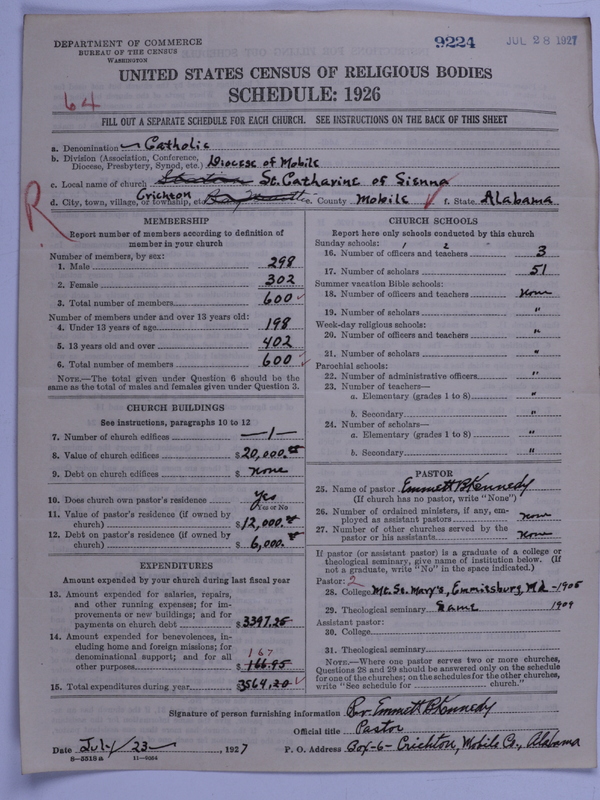 DEPARTMENT OF COMMERCE
BUREAU OF THE CENSUS
WASHINGTON
9224
JUL 28 1927
UNITED STATES CENSUS OF RELIGIOUS BODIES
SCHEDULE: 1926
64
FILL OUT A SEPARATE SCHEDULE FOR EACH CHURCH. SEE INSTRUCTIONS ON THE BACK OF THIS SHEET
a. Denomination Catholic
b. Division (Association, Conference, Diocese, Presbytery, Synod, etc.) Diocese of Mobile
c. Local name of church St. Catharine of Sienna
d. City, town, village, or township, etc. Crichton e. County Mobile f. State Alabama
R
MEMBERSHIP
Report number of members according to definition of
member in your church
Number of members, by sex:
1. Male 298
2. Female 302
3. Total number of members 600
Number of members under and over 13 years old:
4. Under 13 years of age 198
5. 13 years old and over 402
6. Total number of members 600
NOTE.—The total given under Question 6 should be the
same as the total of males and females given under Question 3.
CHURCH BUILDINGS
See instructions, paragraphs 10 to 12
7. Number of church edifices —1—
8. Value of church edifices $20,000.
9. Debt on church edifices $ None
10. Does church own pastor's residence Yes
Yes or No
11. Value of pastor's residence (if owned by
church) $12,000.
12. Debt on pastor's residence (if owned by
church) $ 6,000.
EXPENDITURES
Amount expended by your church during last fiscal year
13. Amount expended for salaries, repairs,
and other running expenses; for im-
provements or new buildings; and for
payments on church debt $3397.25
14. Amount expended for benevolences, in-
cluding home and foreign missions; for
denominational support; and for all
167
other purposes $166.95
15. Total expenditures during year $3564.20
CHURCH SCHOOLS
Report here only schools conducted by this church
Sunday schools: 1 2
16. Number of officers and teachers 3
17. Number of scholars 51
Summer vacation Bible schools:
18. Number of officers and teachers None
19. Number of scholars "
Week-day religious schools:
20. Number of officers and teachers "
21. Number of scholars "
Parochial schools:
22. Number of administrative officers "
23. Number of teachers—
a. Elementary (grades 1 to 8) "
b. Secondary "
24. Number of scholars—
a. Elementary (grades 1 to 8) "
b. Secondary "
PASTOR
25. Name of pastor Emmett B Kennedy
(If church has no pastor, write "None")
26. Number of ordained ministers, if any, em-
ployed as assistant pastors None
27. Number of other churches served by the
pastor or his assistants None
If pastor (or assistant pastor) is a graduate of a college or
theological seminary, give name of institution below. (If
not a graduate, write "No" in the space indicated.)
Pastor: 2
28. College Mt. St. Mary's, Emmitsburg, Md - 1905
29. Theological seminary Same 1909
Assistant pastor:
30. College
31. Theological seminary
NOTE.—Where one pastor serves two or more churches,
Questions 28 and 29 should be answered only on the schedule
for one of the churches; on the schedules for the other churches,
write "See schedule for church."
Signature of person furnishing information Rev Emmett B Kennedy
Official title Pastor
Date July 23, 1927 P. O. Address Box-6- Crichton, Mobile Co., Alabama
8—5518a 11—9354